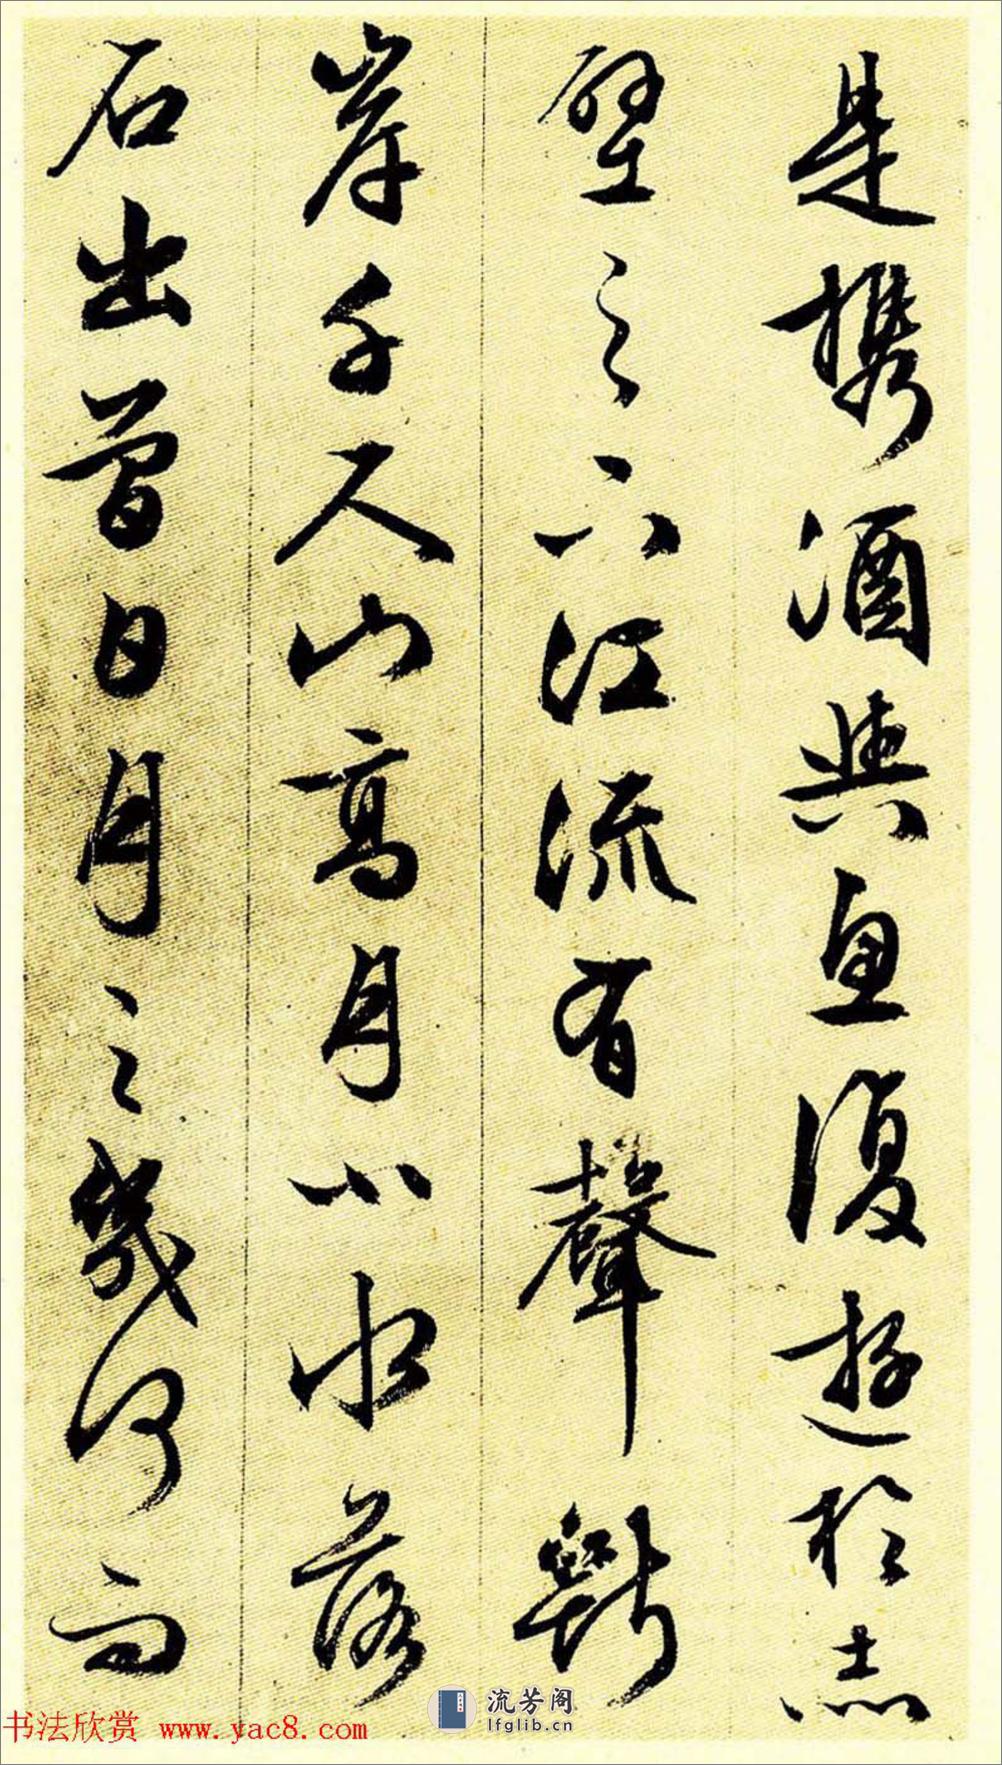 是携酒與魚復遊於赤
壁之下江流有聲斷
岸千尺山高月小水落
石出曾日月之幾何而
流芳阁
lfglib.cn
书法欣赏 www.yac8.com